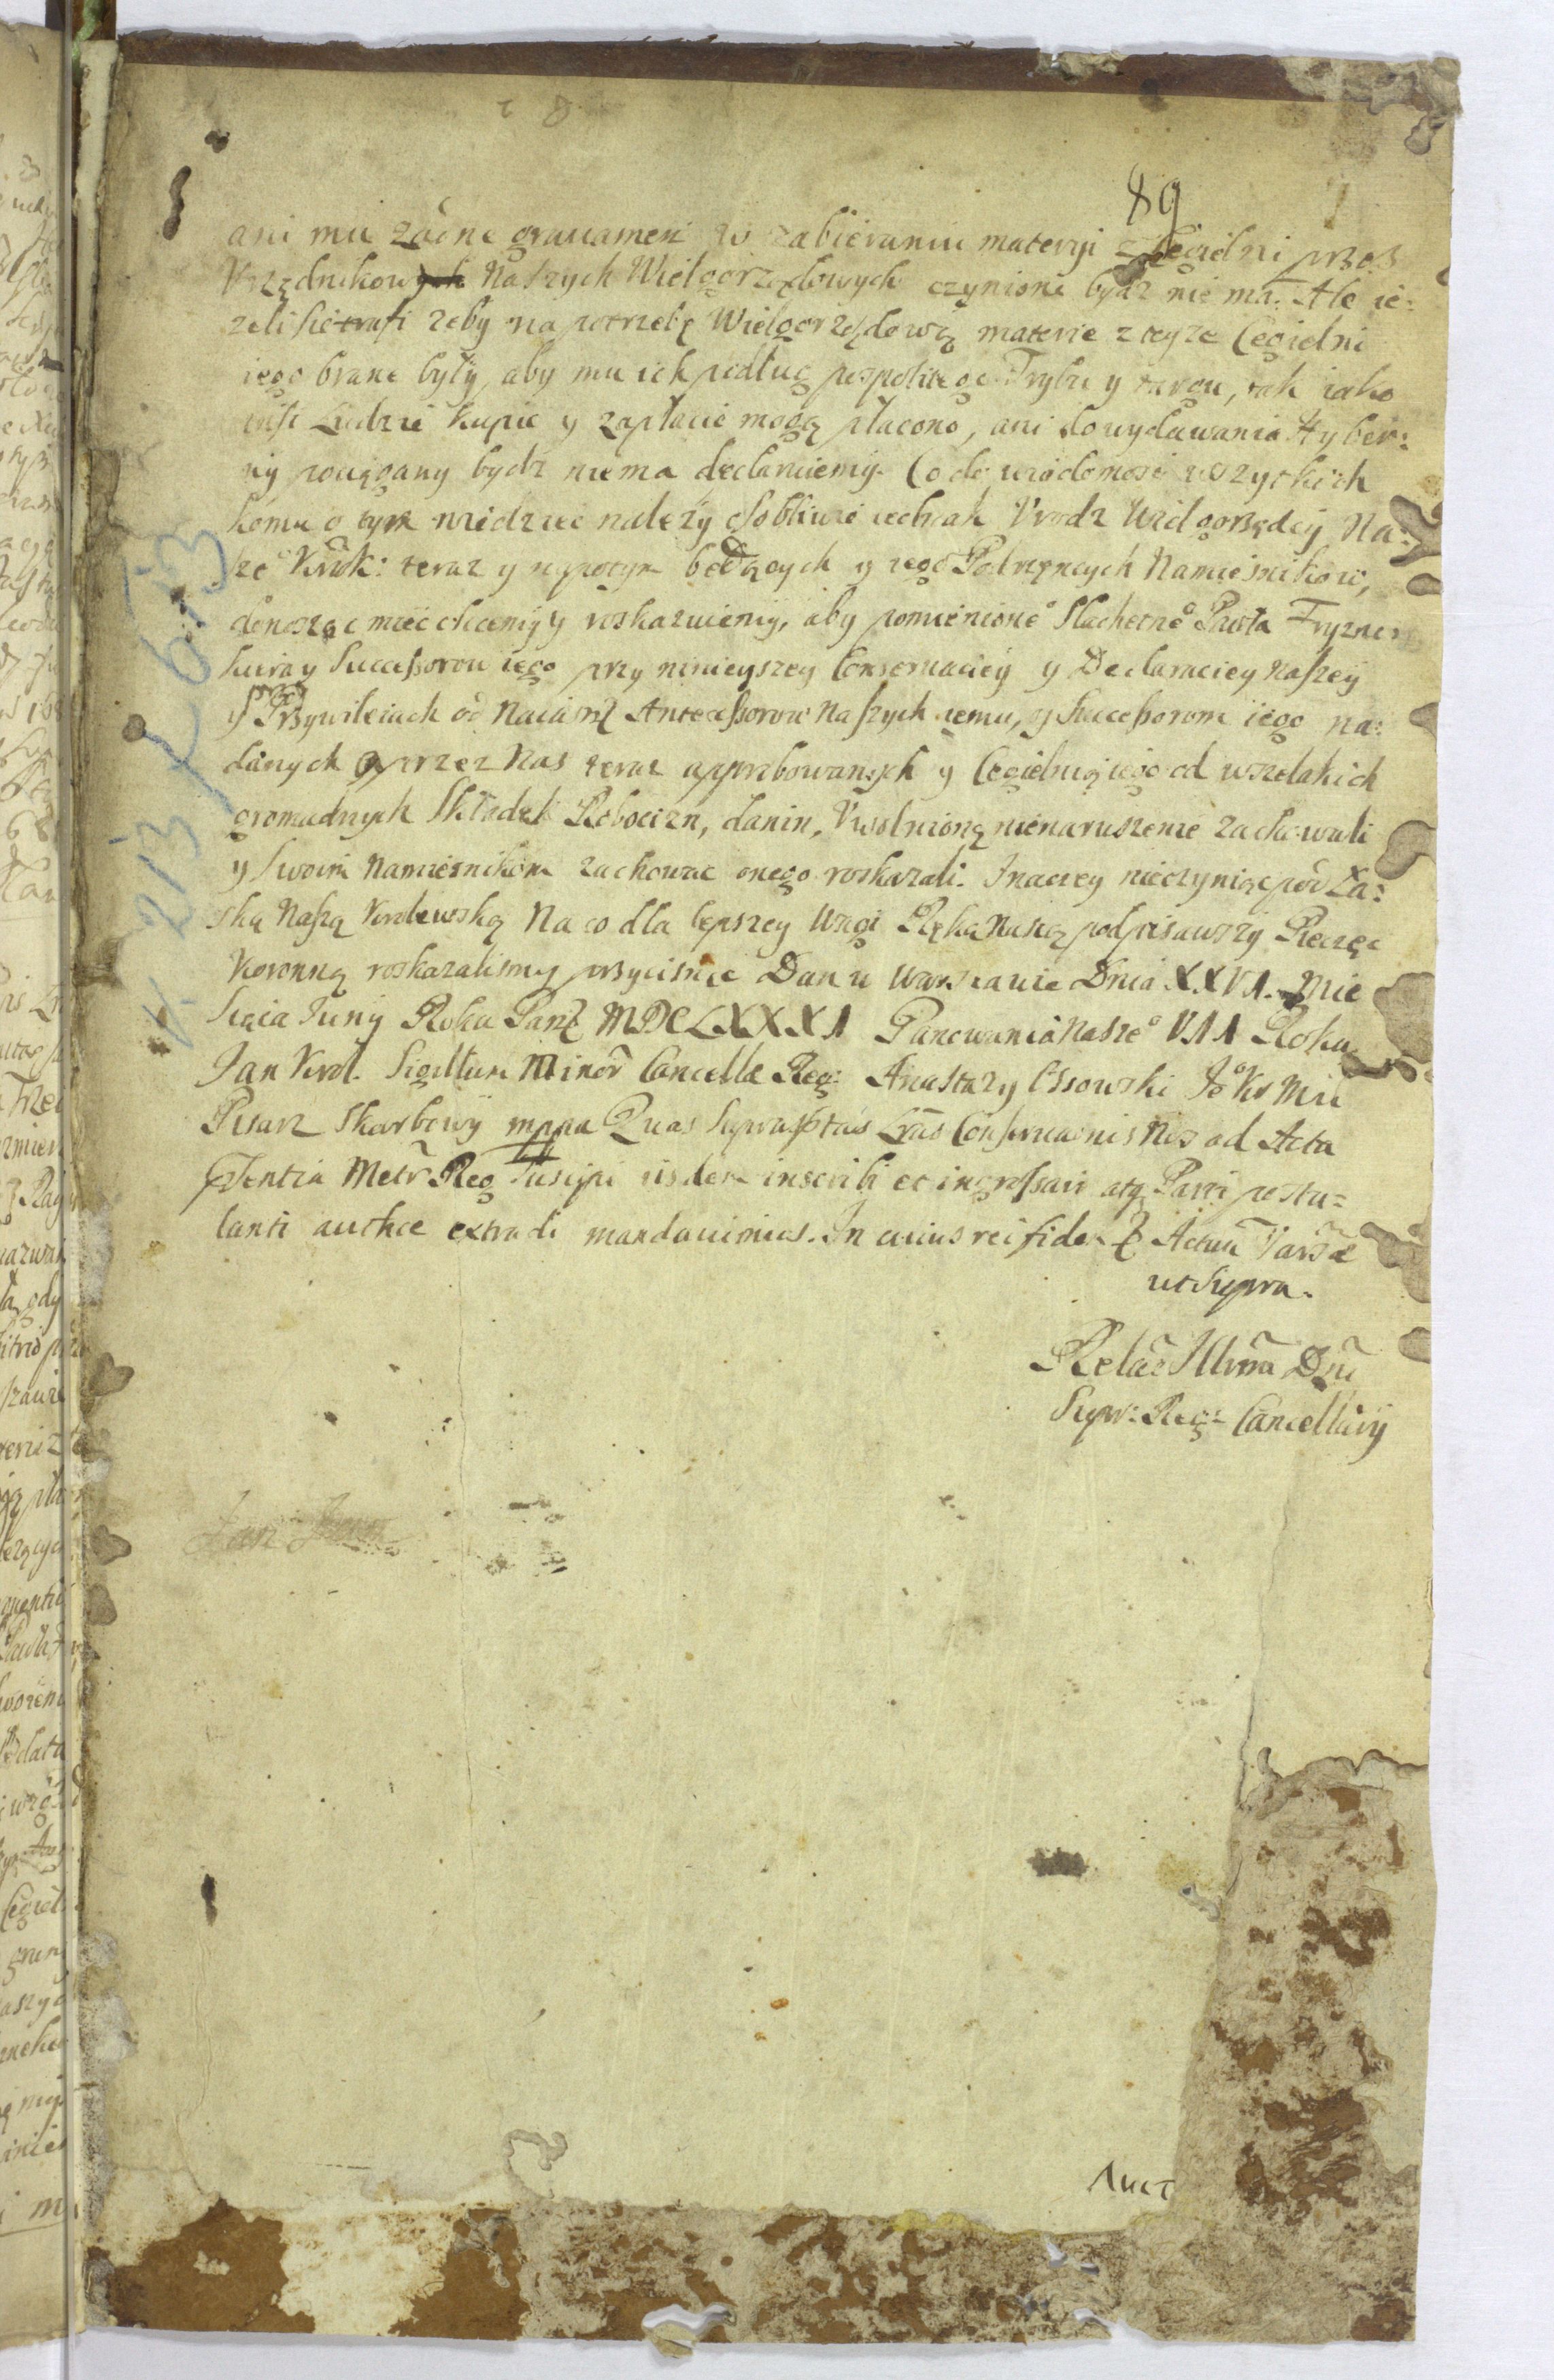 89
ani mu żadne grauamen w zabieraniu materyi z Cegielni przez
Vrzędnikow Naszych Wielgorządowych czynione bydz nie ma. Ale ie:
zeli sie trafi zeby na potrzebę Wielgorządową materie z teyze Cegielni
iego brane były, aby mu ich podług pospolitego Trybu y targu, tak iako
insi Ludzie kupic y zapłacic mogą płacono, ani do wydawania Hyber:
ny pociągany bydz niema declaruiemy. Co do wiadomosci wszytkich
komu o tym wiedziec należy osobliwie iednak Vrodz Wielgorządcy Na:
szeº Krak: teraz y napotym będących y iego Podrzęnych Namiesnikow,
donosząc miec chcemy y roskazuiemy, aby pomienioneº Slachetneº Pawła Fryznek
kiera y Successorow iego przy ninieyszey Conseruaciey y Declaraciey Naszey
y przy Przywileiach od Naiasn Antecessorow Naszych iemu, y Successorom iego na:
danych y przez Nas teraz approbowanych y Cegielnią iego od wszelakich
gromadnych Składek Robocizn, danin, Vwolnioną nienaruszenie zachowali
y Swoim Namiesnikom zachowac onego roskazali. Inaczey nieczyniąc pod Ła:
ską Naszą Krolewską Na co dla lepszey Wagi Ręką Naszą podpisawszy Pieczęc
Koronną roskazalismy przycisnąc Dan w Warszawie Dnia XXVI. Mie
siąca Juny Roku Pans MDCLXXXI Panowania Naszeº VII Roku
Jan Krol. Sigillum Minor Cancellæ Reg: Anastazy Ossowski Jº Kr Mci
Pisarz Skarbowy mppa Quas Suprasptas Lras Conseruaonis Nos ad Acta
pntia Metr Reg Suscipi iisdem inscribi et ingrossari atq Parti postu=
lanti authce extradi mandauimus. In cuius rei fidem & Actum Varsæ
ut Supra.
Relao Illrmi Dni
Supr: Reg: Cancellarij
Jan
Лист